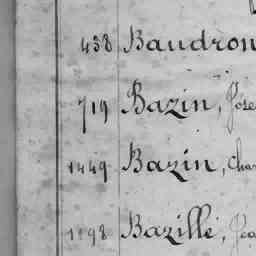 438 Baudron
719 Bazin, Jose
1449 Bazin, Char
1098 Bazille, Jea